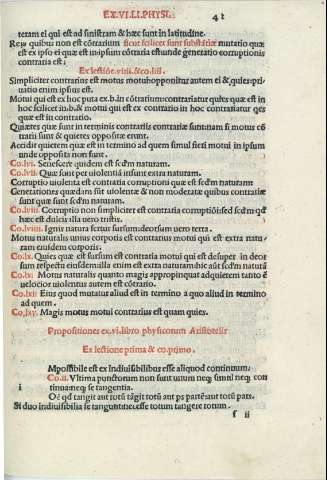 EX.VI.LI.PHYSI. 41
teram ei qui est ad sinistram & hæc sunt in latitudine.
Reɣ quibus non est cōtrarium sicut scilicet sunt substātiæ mutatio quæ
est ex ipso ei quæ est in ipsum cōtraria est: unde generatio corruptionis
contraria est:
Ex lectiōe
Simpliciter contrarius est motus motui opponitur autem ei &
uatio enim ipsius est.
Motui qui est ex hoc puta ex.b.in cōtrarium: contrariatur quies quæ est in
hoc scilicet in.b.& motui qui est ex contrario in hoc contrariatur
quæ est in contrario.
Quietes quæ sunt in terminis contrariis contrariæ sunt: nam si motus cō
trarii sunt & quietes oppositæ erunt.
Accidit quietem quæ est in termino ad quem simul fieri motui in ipsum
unde opposita non sunt.
Co.lvi. Senescere quidem est scd̄m naturam.
Co.lvii. Quæ sunt per uiolentiā insunt extra naturam.
Corruptio uiolenta est contraria corruptioni quæ est scd̄m naturam
Generationes quædam sūt uiolentæ & non moderatæ quibus contrariæ
sunt quæ sunt scd̄m naturam.
Co.lviii. Corruptio non simpliciter est contraria corruptiōi sed
hæc est dulcis illa uero tristis.
Co.lviiii. Ignis natura fertur sursum: deorsum uero terra.
Motui naturalis unius corporis est contrarius motui qui est extra natu
ram eiusdem corporis.
Co.lx. Quies quæ est sursum est contraria motui qui est desuper in deor
sum respectu eiusdem: illa enim est extra naturam: hic aūt scd̄m naturā
Co.lxi. Motus naturalis quanto magis appropinquat ad quietem tanto ē
uelocior uiolentus autem est cōtrario.
Co.lxii. Eius quod mutatur aliud est in termino a quo aliud in termino
ad quem.
Magis motus motui contrarius est quam quies.
Propositiones ex.vi.libro physicorum Aristotelis
Ex lectione prima & co.primo.
i
Mpossibile est ex Indiuisibilibus esse aliquod continuum.
Co.ii. Vltima punctorum non sunt unum neq; simul neq; con
tinua neq; se tangentia.
Oē qd tangit aut totū tāgit totū aut ps partē aut totū pars.
Si duo indiuisibilia se tangunt necesse totum tangere totum.
f ii